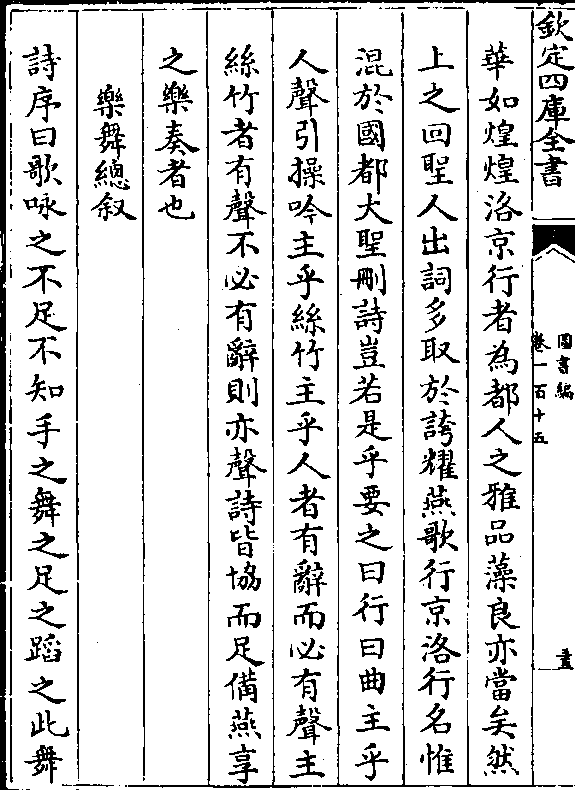 欽定四庫全書
圖書編
卷一百十五
華如煌煌洛京行者為都人之雅品藻良亦當矣然
上之回聖人出詞多取於誇耀燕歌行京洛行名惟
混於國都大聖刪詩豈若是乎要之曰行曰曲主乎
人聲引操吟主乎絲竹主乎人者有辭而必有聲主
絲竹者有聲不必有辭則亦聲詩皆協而足備燕享
之樂奏者也
樂舞總叙
詩序曰歌咏之不足不知手之舞之足之蹈之此舞